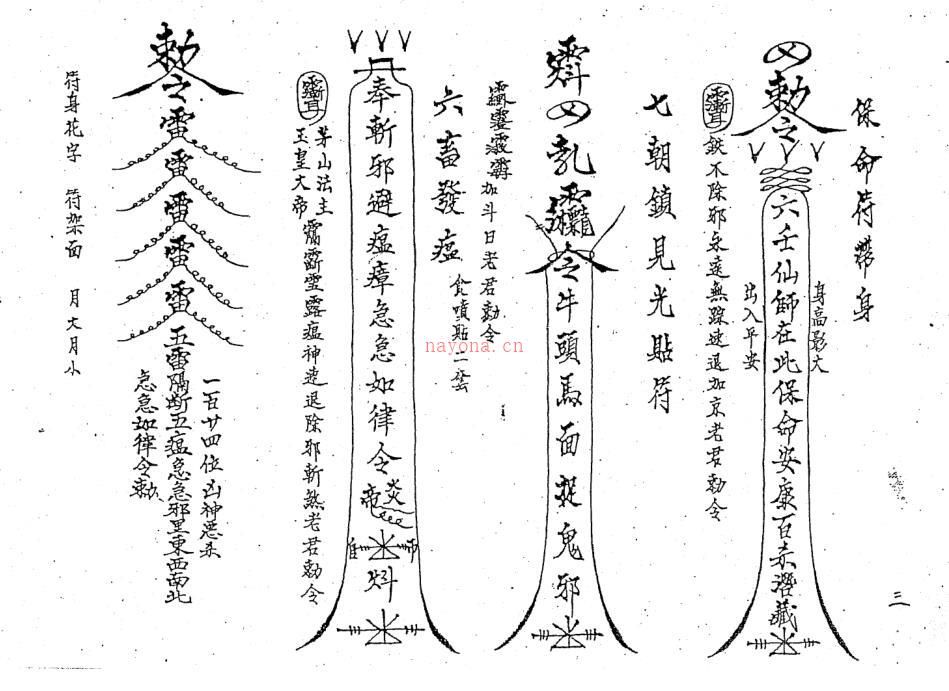 保命符帶身
身高影大
出入平安
勅令
六壬仙師在此保命安康百杀潛藏
鉄不除邪永遠無踪速退加京老君勅令
三
七朝鎖見光貼符
令牛頭馬面捉鬼邪
加斗日老君勅令
六畜發瘟
食噴貼二套
奉斬邪避瘟瘴急急如律令
茅山法主
玉皇大帝
瘟神速退除邪斬煞老君勅令
勅令雷雷雷雷雷五雷隔断五瘟急急邪里東西南北
一百廿四位凶神惡杀
急急如律令勅
符身花字 符架面 月大月小
nayona.cn